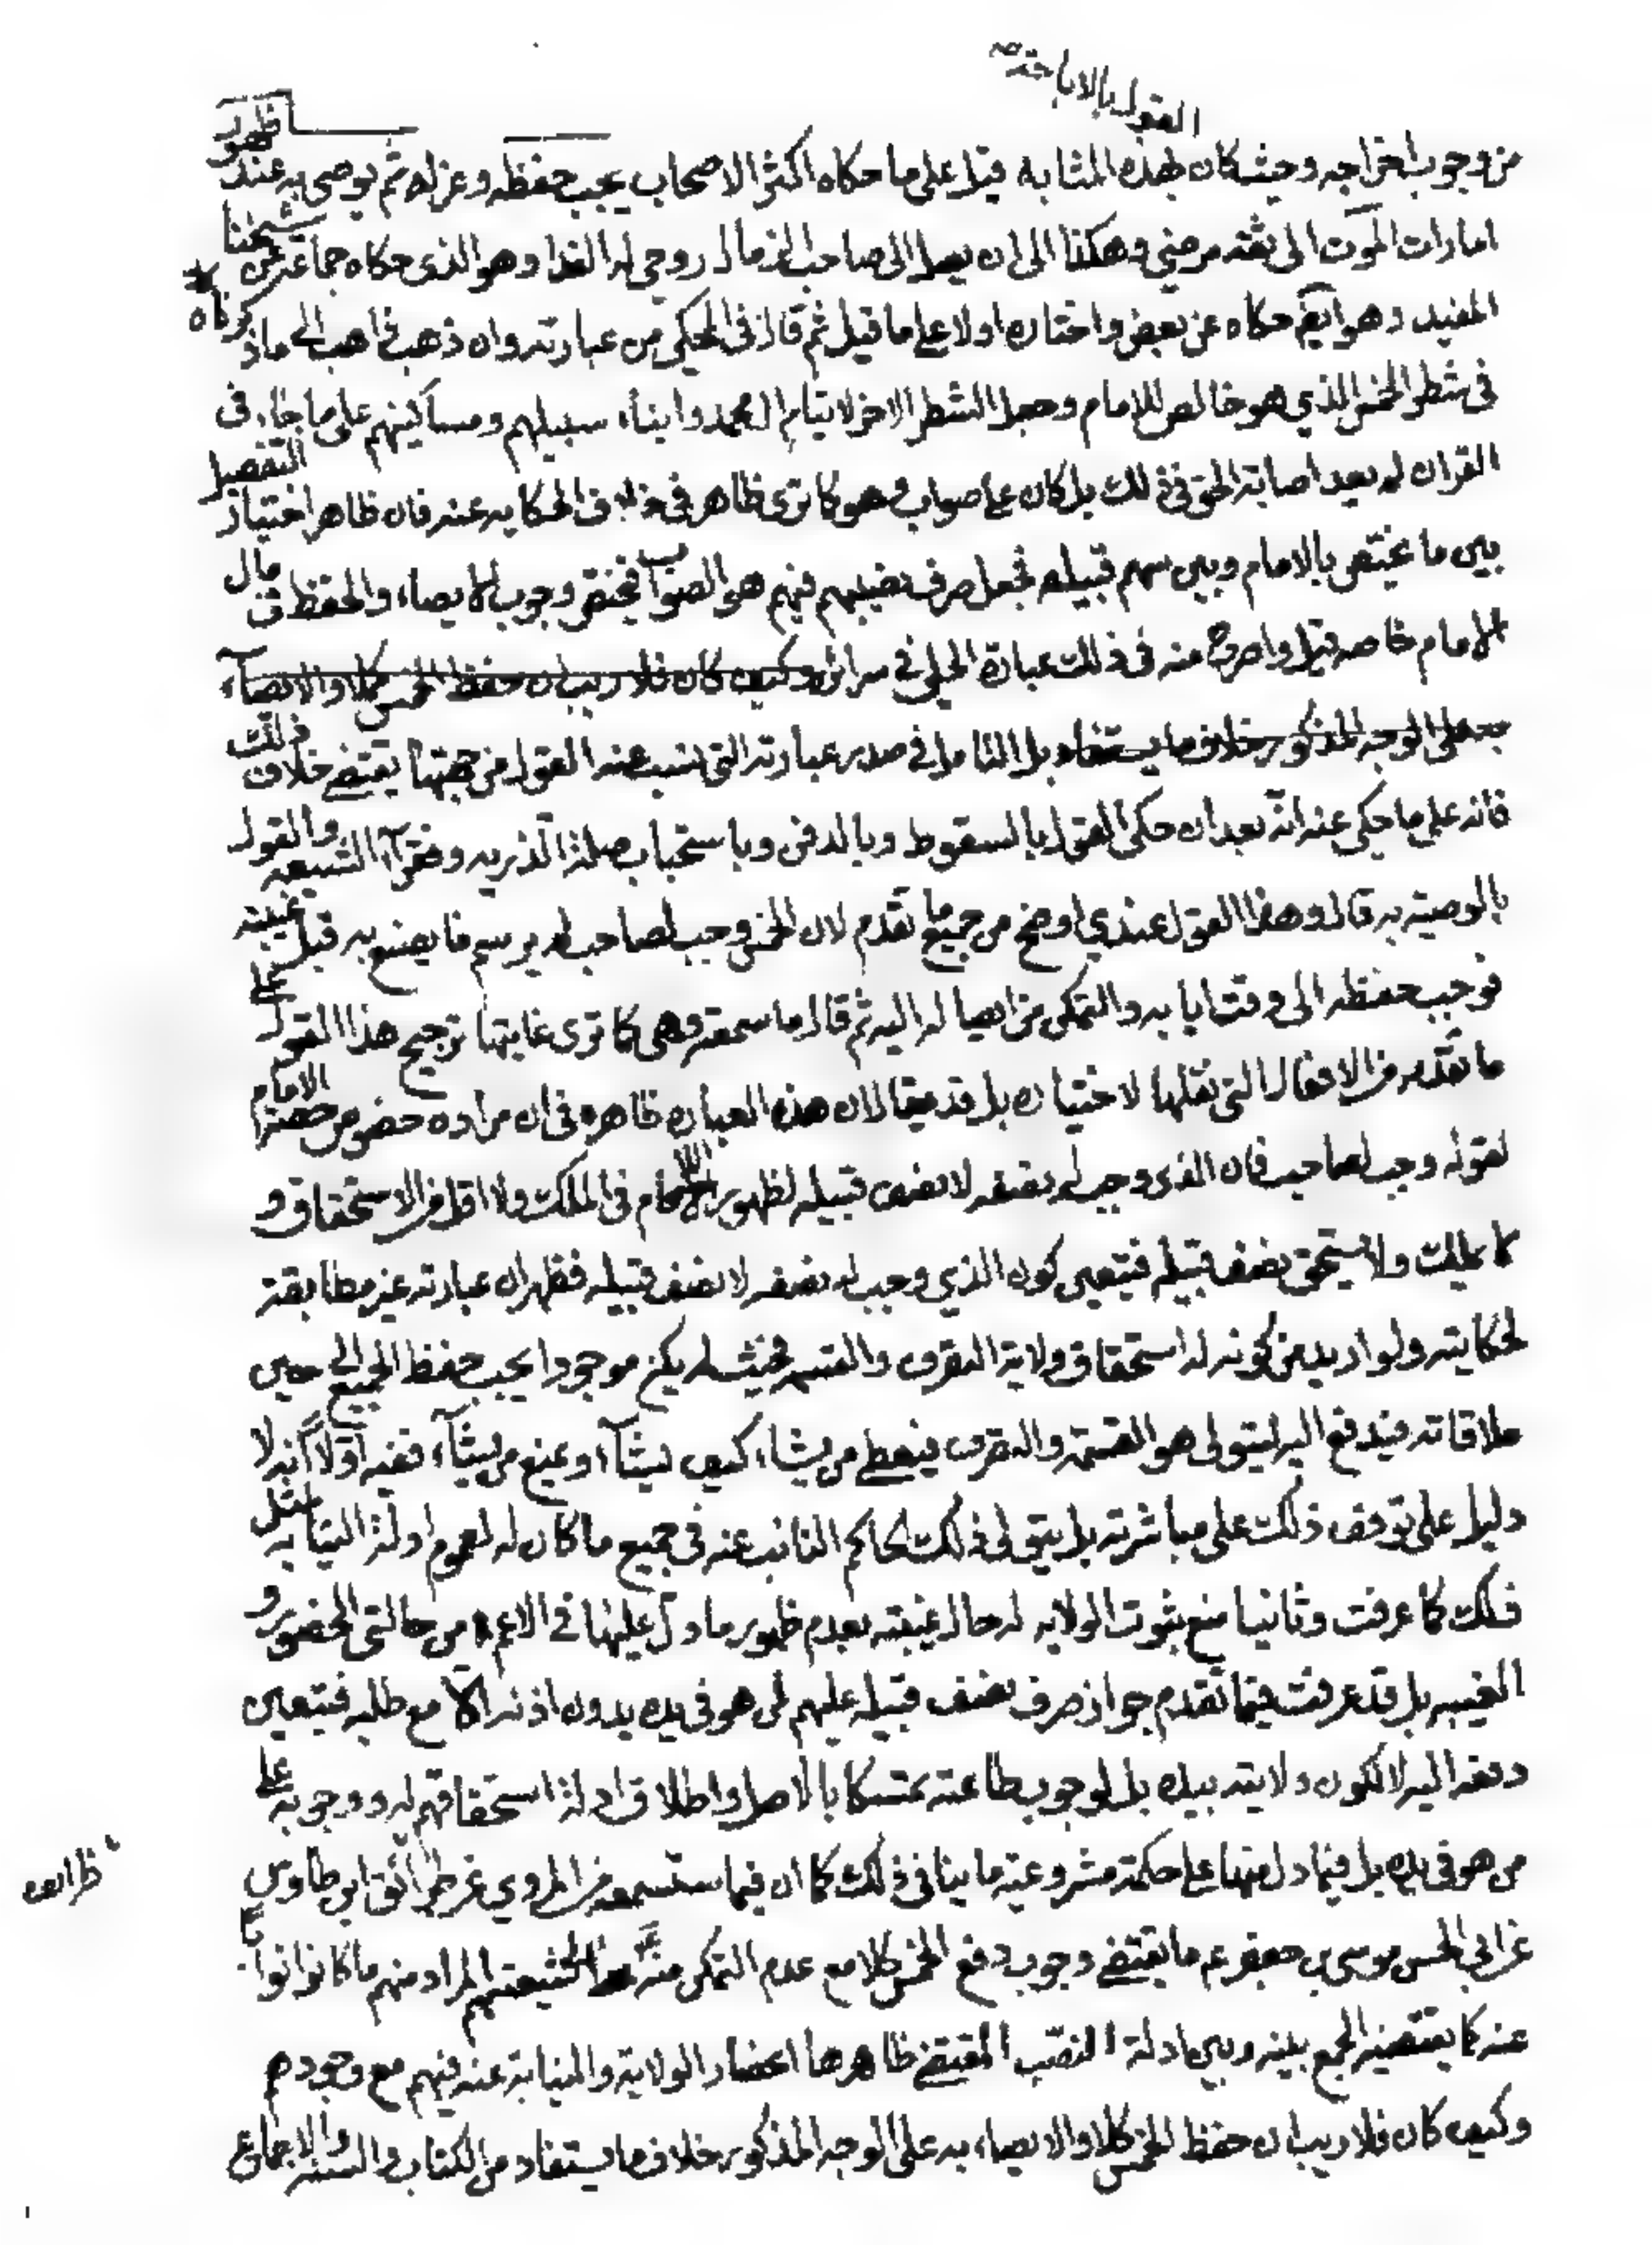 القول بالاباحة
من وجوب اخراجه وحيث كان بهذه المثابه قيل على ما حكاه اكثر الاصحاب يجب حفظه وعزله ثم يوصى به عند ظهور
امارات الموت الى ثقة مرضي وهكذا الى ان يصل الى صاحب الزمان روحي له الفدا وهو الذى حكاه جماعة عن شيخنا
المفيد وهو ايض حكاه عن بعض واختاره اولا على ما قيل ثم قال فى المحكي من عبارته وان ذهب ذاهب الى ما ذكرناه
فى شطر الخمس الذي هو خالص للامام وجعل الشطر الاخر لايتام ال محمد وابناء سبيلهم ومساكينهم على ما جاء فى
القران لم يبعد اصابة الحق فى ذلك بل كان على صواب وهو كما ترى ظاهر فى خلاف الحكايه عنه فان ظاهر اختيار التفصيل
بين ما يختص بالامام وبين سهم قبيله فجعل صرف نصيبهم فيهم هو الصواب فيختص وجوب الايصاء والحفظ فى مال
الامام خاصه قيل واصرح منه فى ذلك عبارة الحلي في سرائره وكيف كان فلا ريب ان حفظ الخمس كملا والايصاء
به على الوجه المذكور خلاف ما يستفاد بل التامل في صدر عبارته التي نسب عنه القول من جهتها يقتضي خلاف ذلك
فانه على ما حكي عنه انه بعد ان حكى القول بالسقوط وبالدفن وباستحباب صلة الذريه وفقرآء الشيعه والقول
بالوصية به قال وهذا القول عندي اوضح من جميع ما تقدم لان الخمس وجب لصاحب لم يرسم ما يصنع به قبل غيبته
فوجب حفظه الى وقت ايابه والتمكن من ايصاله اليه ثم قال ما سمعته وهى كما ترى غايتها ترجيح هذا القول على
ما تقدم من الاقوال التى نقلها لا اختياره بل قد يقال ان هذه العباره ظاهره فى ان مراده خصوص حصة الامام
لقوله وجب لصاحب فان الذى وجب له نصفه لا نصف قبيله لظهور اللام فى الملك ولا اقل من الاستحقاق و
لا يملك ولا يستحق نصف قبيله فيتعين كون الذي وجب له نصفه لا نصف قبيله فظهر ان عبارته غير مطابقة
لحكايته ولو اريد من كونه له استحقاق ولاية التصرف والقسمه فحيث لم يكن موجودا يجب حفظ الجميع الى حين
ملاقاته فيدفع اليه ليتولى هو القسمة والتصرف فيعطي من يشاء كيف يشآء ويمنع من يشآء ففيه اولا انه لا
دليل على توقف ذلك على مباشرته بل يتولى ذلك الحاكم النائب عنه فى جميع ما كان له لعموم ادلة النيابه لمثل
ذلك كما عرفت وثانيا منع ثبوت الولايه له حال غيبته بعدم ظهور ما دل عليها في الاعم من حالتى الحضور و
الغيبه بل قد عرفت فيما تقدم جواز صرف نصف قبيله عليهم لمن هو فى يده بدون اذنه الا مع طلبه فيتعين
دفعه اليه لا لكون ولايته بيده بل لوجوب طاعته تمسكا بالاصل واطلاق ادلة استحقاقهم له ووجوبه على
من هو فى يده بل فيما دل منها على حكمة مشروعيته ما ينافى ذلك كما ان فيما ستسمعه من المروي عن طرائق ابن طاوس
ظرائف
عن ابي الحسن موسى بن جعفر عم ما يقتضي وجوب دفع الخمس كملا مع عدم التمكن منه لشيعتهم المراد منهم ما كانوا نوابا
عنه كما يقتضيه الجمع بينه وبين ادلة النصب المقتضي ظاهرها انحصار الولاية والنيابة عنه فيهم مع وجودهم
وكيف كان فلا ريب ان حفظ الخمس كملا والايصاء به على الوجه المذكور خلاف ما يستفاد من الكتاب والسنه والاجماع